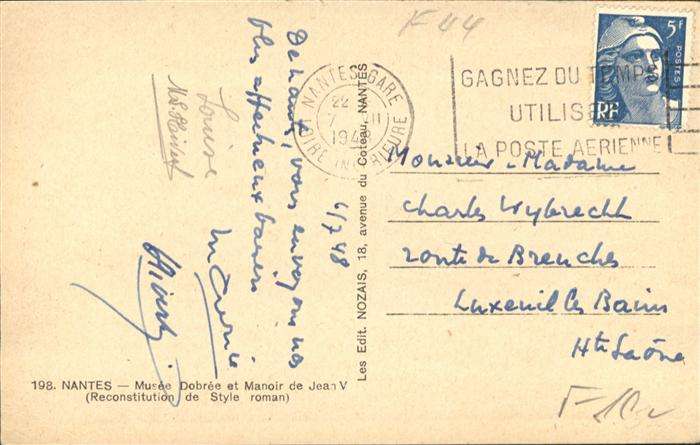 F 44
De Nantes, vous envoyons nos
plus affectueux baisers
Maurice
Louise
6/7 48
NANTES-GARE
22
7
1948
LOIRE INFÉRIEURE
GAGNEZ DU TEMPS
UTILISEZ
LA POSTE AERIENNE
5F
POSTES
RF
Monsieur - Madame
Charles Wybrecht
route de Breuches
Luxeuil les Bains
Hte Saône
Les Edit. NOZAIS, 18, avenue du Coteau, NANTES
198. NANTES — Musée Dobrée et Manoir de Jean V
(Reconstitution de Style roman)